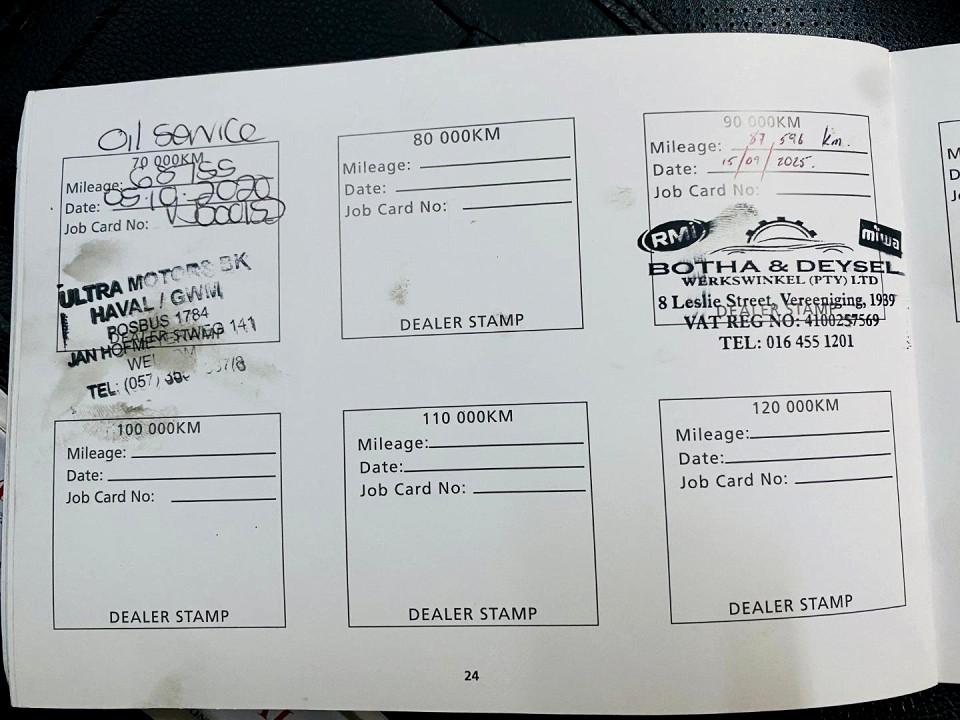 Oil service
70 000KM
Mileage: 68755
Date: 05.10.2020
Job Card No:
ULTRA MOTORS BK
HAVAL / GWM
POSBUS 1784
DEALER STAMP
JAN HOFMEYRWEG 141
TEL: (057)
80 000KM
Mileage:
Date:
Job Card No:
DEALER STAMP
90 000KM
Mileage: 87,596 km.
Date: 15/09/2025.
Job Card No:
RMi
miwa
BOTHA & DEYSEL
WERKSWINKEL (PTY) LTD
8 Leslie Street, Vereeniging, 1939
DEALER STAMP
VAT REG NO: 4100257569
TEL: 016 455 1201
100 000KM
Mileage:
Date:
Job Card No:
DEALER STAMP
110 000KM
Mileage:
Date:
Job Card No:
DEALER STAMP
120 000KM
Mileage:
Date:
Job Card No:
DEALER STAMP
24